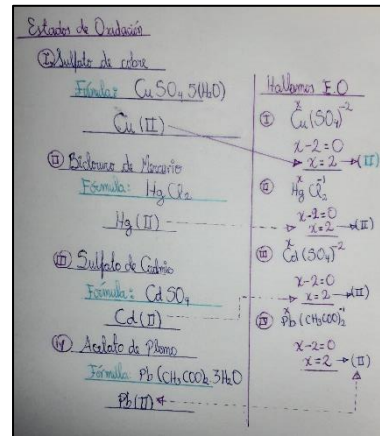 Estados de Oxidación
I Sulfato de cobre
Fórmula: CuSO4 5(H2O)
Cu (II)
II Bicloruro de Mercurio
Fórmula: HgCl2
Hg (II)
III Sulfato de Cadmio
Fórmula: CdSO4
Cd (II)
IV Acetato de Plomo
Fórmula: Pb(CH3COO)2 3H2O
Pb (II)
Hallamos E.O
I x Cu(SO4)-2
x-2=0
x=2 → (II)
II x Hg Cl2 -1
x-2=0
x=2 → (II)
III x Cd(SO4)-2
x-2=0
x=2 → (II)
IV x Pb(CH3COO)2 -1
x-2=0
x=2 → (II)